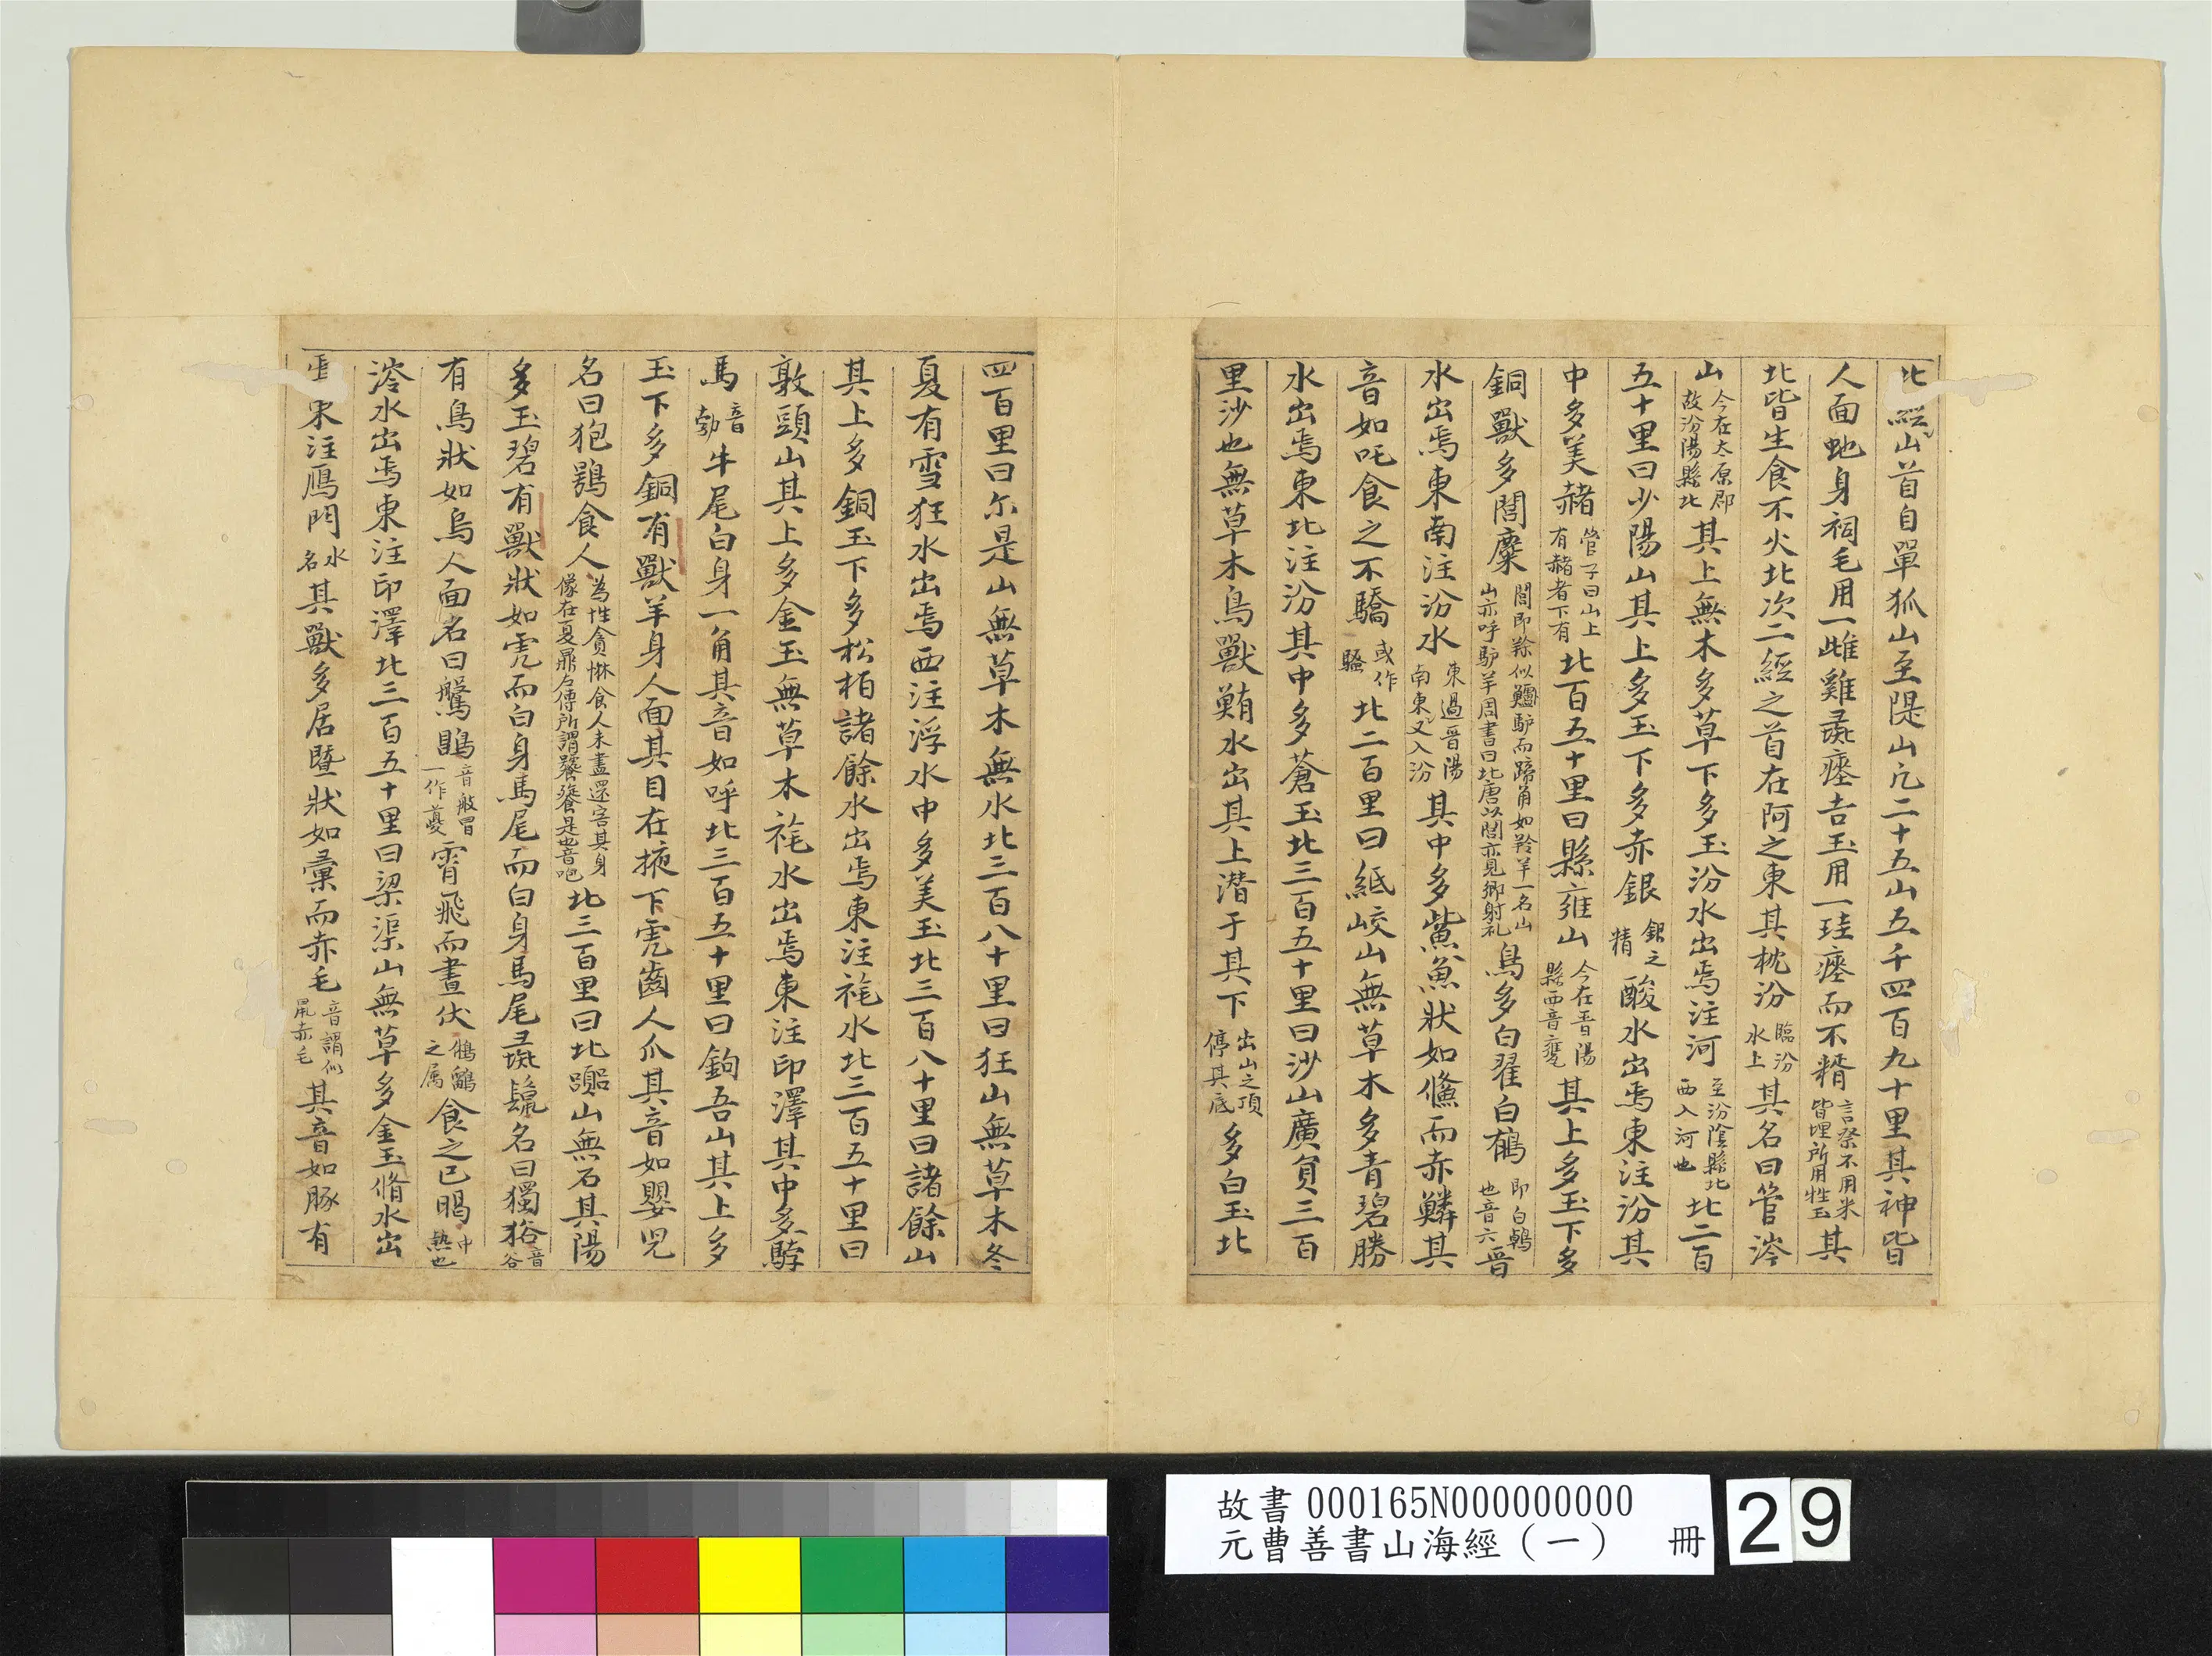 北經山首自單狐山至隄山凢二十五山五千四百九十里其神皆
人面虵身祠毛用一雄雞彘瘞吉玉用一珪瘞而不糈言祭不用米皆埋所用牲玉其
北皆生食不火北次二經之首在阿之東其枕汾臨汾水上其名曰管涔
山今在太原郡故汾陽縣北其上無木多草下多玉汾水出焉注河至汾陰縣北西入河也北二百
五十里曰少陽山其上多玉下多赤銀銀之精酸水出焉東注汾其
中多美赭管子曰山上有赭者下有北百五十里曰縣雍山今在晋陽縣西音甕其上多玉下多
銅獸多閭麋閭即羭似驢而蹄角如羚羊一名山山亦呼驴羊周書曰北唐以閭亦見郷射礼鳥多白翟白鵺即白鵫也音六晋
水出焉東南注汾水東過晋陽南東又入汾其中多鮆魚狀如儵而赤鱗其
音如吒食之不驕或作騷北二百里曰紙峧山無草木多青碧勝
水出焉東北注汾其中多蒼玉北三百五十里曰沙山廣負三百
里沙也無草木鳥獸鮪水出其上潛于其下出山之頂停其底多白玉北
四百里曰尔是山無草木無水北三百八十里曰狂山無草木冬
夏有雪狂水出焉西注浮水中多美玉北三百八十里曰諸餘山
其上多銅玉下多松栢諸餘水出焉東注旄水北三百五十里曰
敦頭山其上多金玉無草木旄水出焉東注印澤其中多騂
馬音勃牛尾白身一角其音如呼北三百五十里曰鉤吾山其上多
玉下多銅有獸羊身人面其目在掖下虎齒人爪其音如嬰兒
名曰狍鴞食人為性貪惏食人未盡還害其身像在夏鼎左傳所謂饕餮是也音咆北三百里曰北嚻山無石其陽
多玉碧有獸狀如虎而白身馬尾而白身馬尾彘鬣名曰獨狢音谷
有鳥狀如烏人面名曰鷩鶥音般冒一作夔霄飛而晝伏鵂鶹之属食之已暍中熱也
涔水出焉東注印澤北三百五十里曰梁渠山無草多金玉脩水出
焉東注鴈門水名其獸多居暨狀如彙而赤毛音謂似鼠赤毛其音如豚有
故書 000165N000000000
元曹善書山海經（一） 冊
29